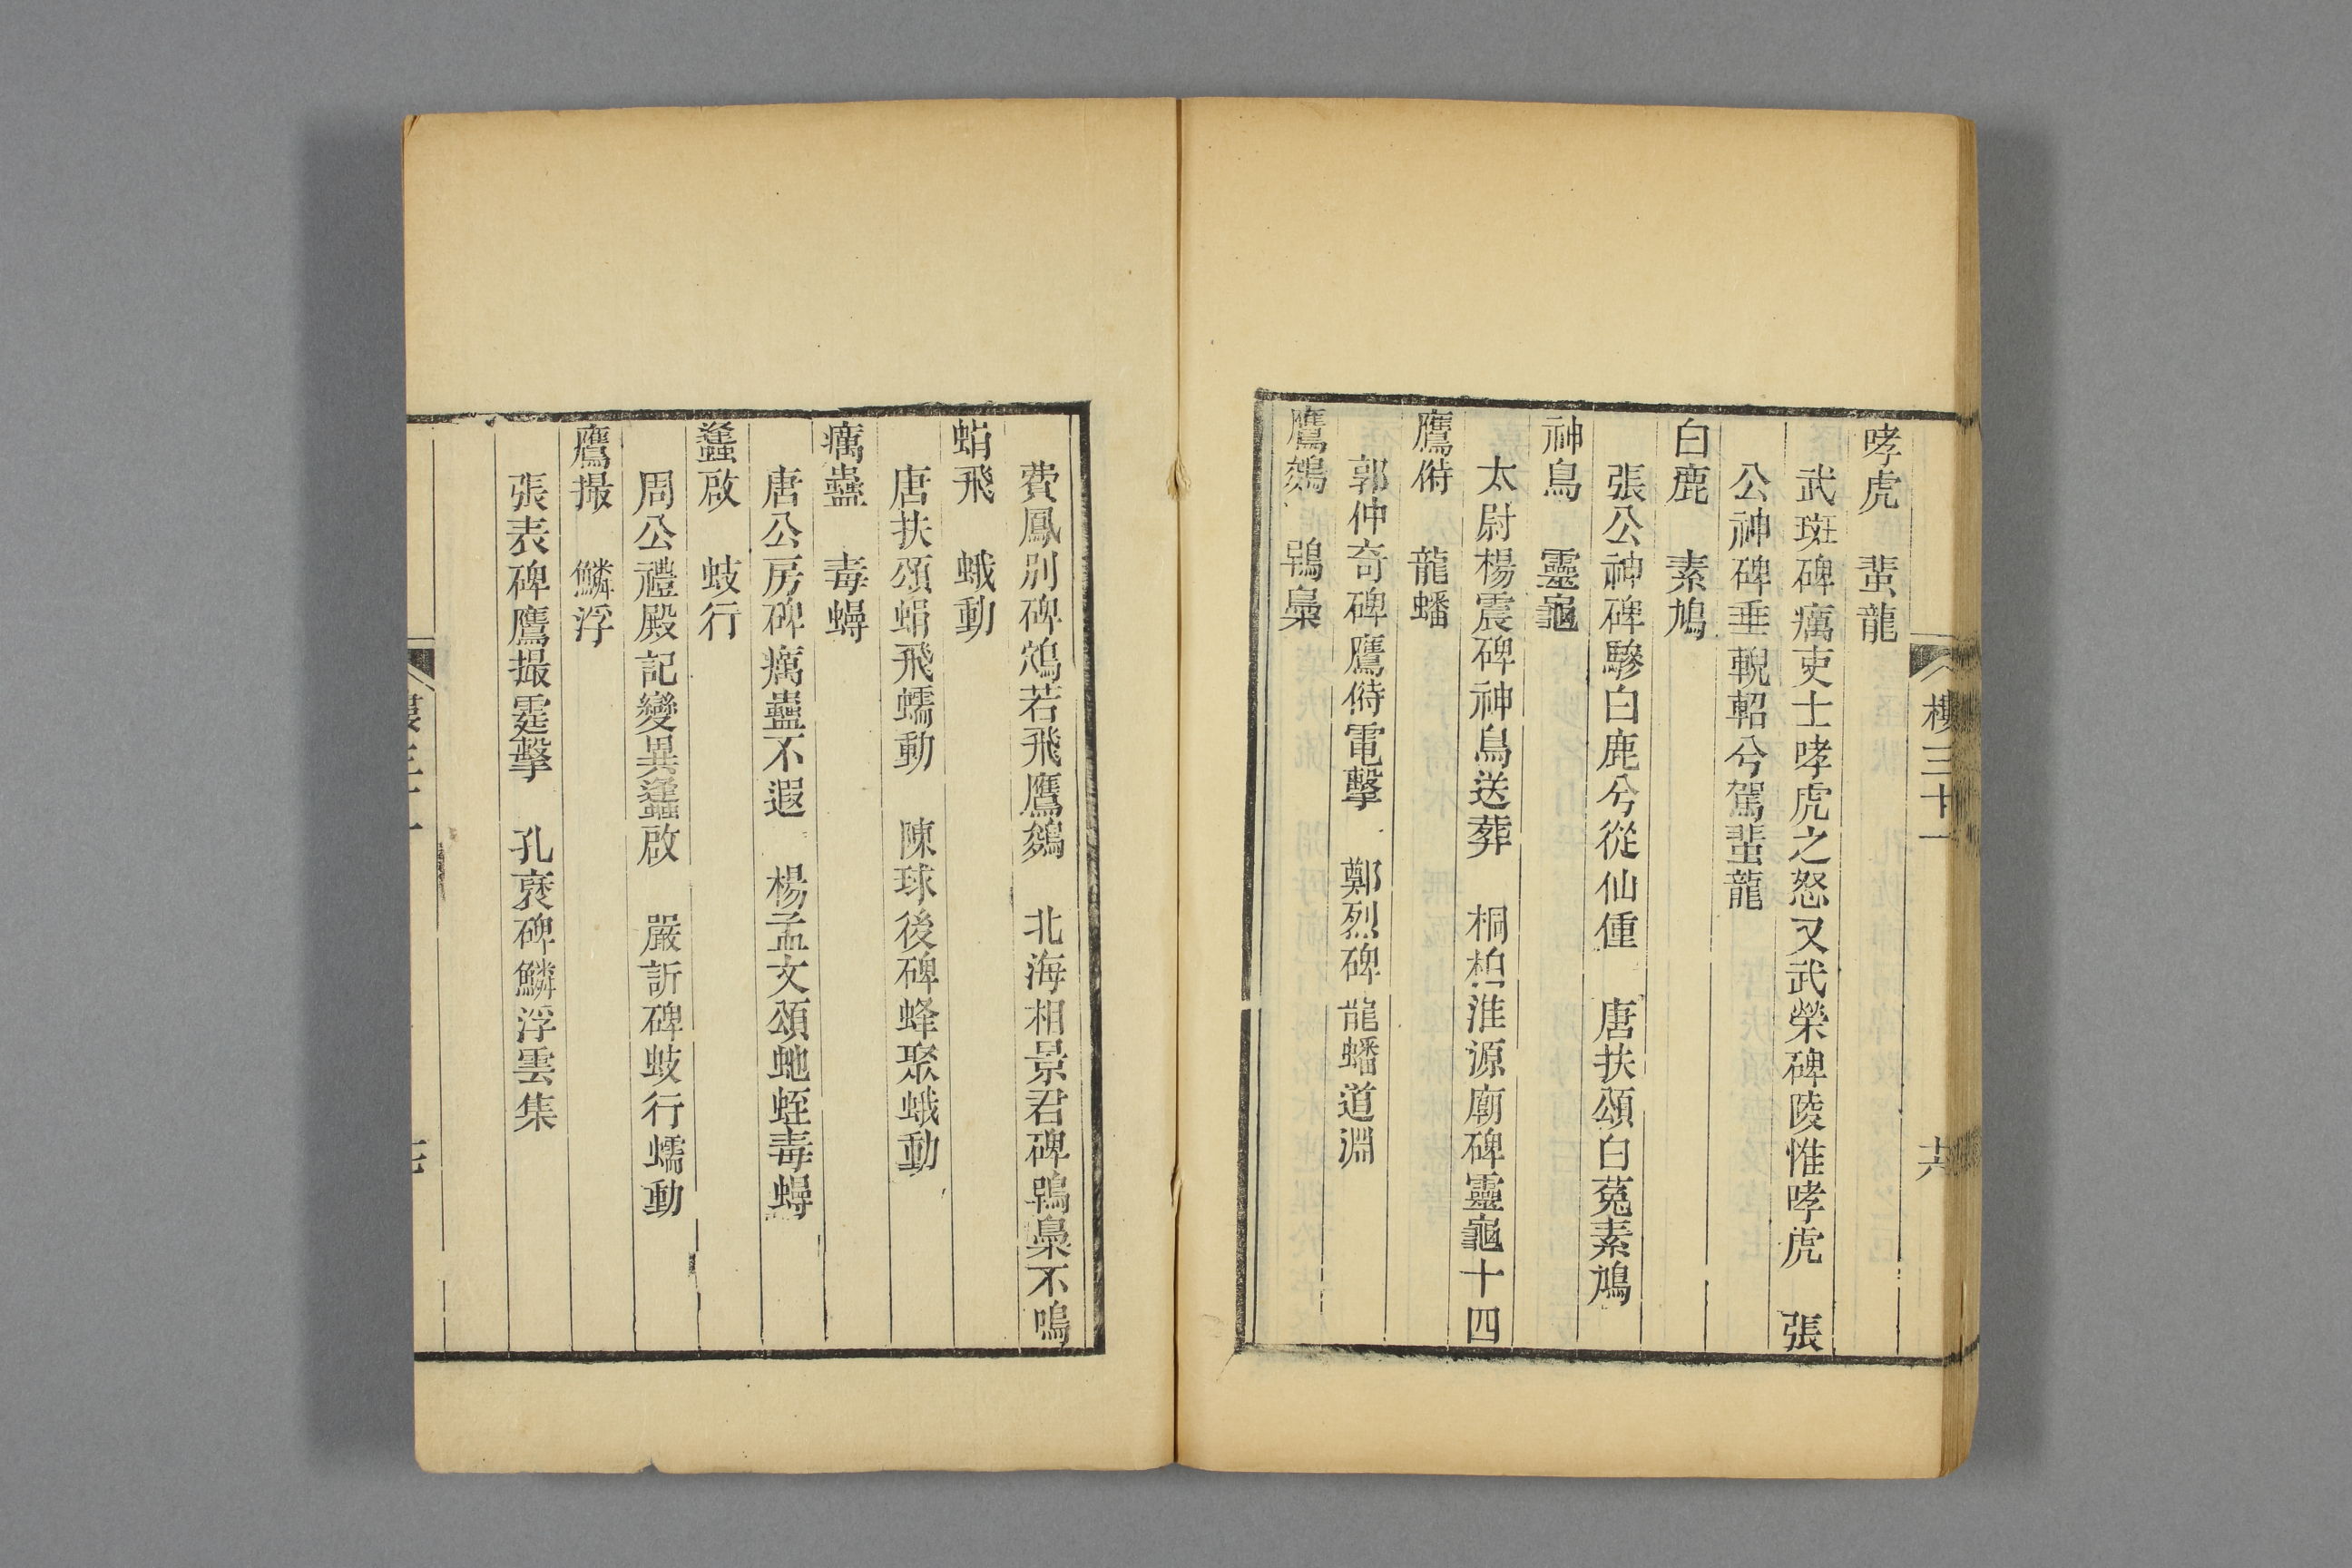 樓三十一 共
哮虎 蜚龍
武斑碑癘吏士哮虎之怒又武榮碑陵惟哮虎 張
公神碑乖輗軺兮駕蜚龍
白鹿 素鳩
張公神碑驂白鹿兮從仙僮 唐扶頌白菟素鳩
神鳥 靈龜
太尉楊震碑神鳥送葬 桐柏淮源廟碑靈龜十四
鷹偫 龍蟠
郭仲奇碑鷹偫電擊 鄭烈碑龍蟠道淵
鷹鷂 鴞梟
費鳳別碑鴆若飛鷹鷂 北海相景君碑鴞梟不鳴
蜎飛 蛾動
唐扶頌蜎飛蠕動 陳球後碑蜂聚蛾動
癘蠱 毒蟃
唐公房碑癘蠱不遐 楊孟文頌虵蛭毒蟃
蠭啟 蚑行
周公禮殿記變異蠭啟 嚴訢碑蚑行蠕動
鷹撮 鱗浮
張表碑鷹撮霆擊 孔褒碑鱗浮雲集